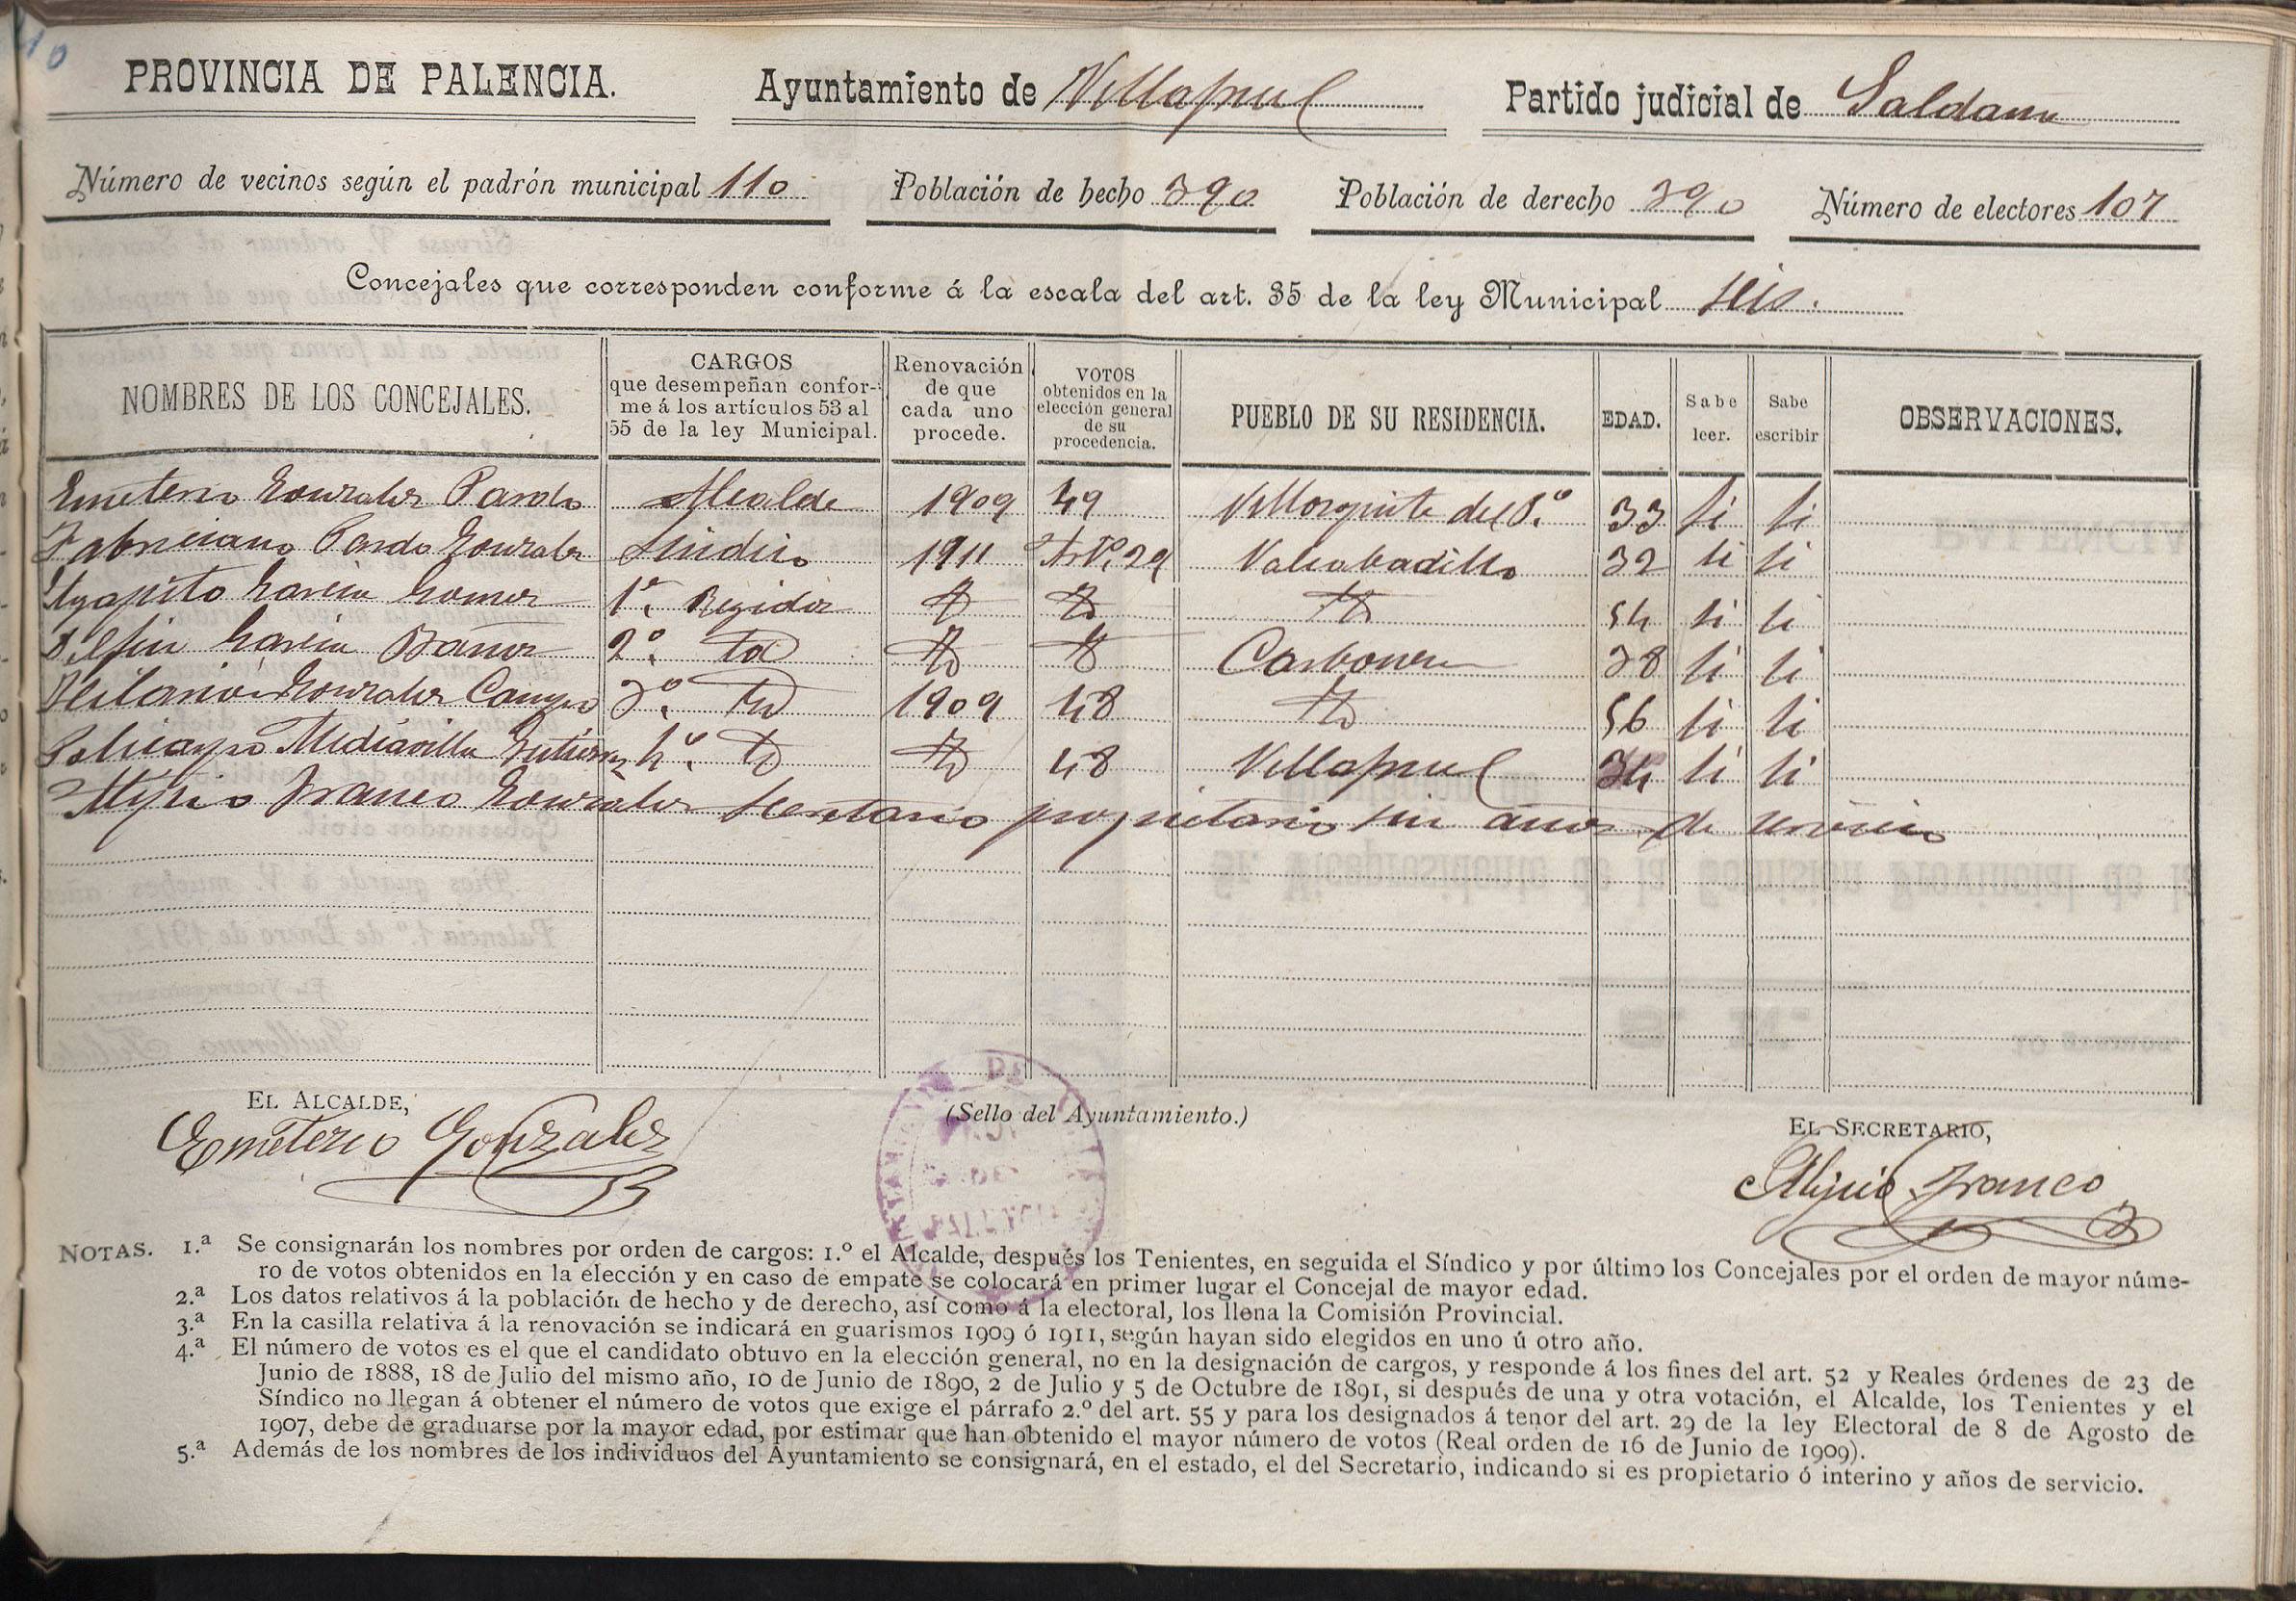 10
PROVINCIA DE PALENCIA. Ayuntamiento de Villaprul Partido judicial de Saldaña
Número de vecinos según el padrón municipal 110 Población de hecho 390 Población de derecho 390 Número de electores 107
Concejales que corresponden conforme á la escala del art. 35 de la ley Municipal seis.
NOMBRES DE LOS CONCEJALES. CARGOS que desempeñan conforme á los artículos 53 al 55 de la ley Municipal. Renovación de que cada uno procede. VOTOS obtenidos en la elección general de su procedencia. PUEBLO DE SU RESIDENCIA. EDAD. Sabe leer. Sabe escribir OBSERVACIONES.
Emeterio Gonzalez Pardo Alcalde 1909 49 Villorquite del P.º 33 si si
Fabriciano Pardo Gonzalez Sindico 1911 Art.º 29 Valcabadillo 32 si si
Agapito Garcia Gomez 1º. Regidor Id Id Id 54 si si
Delfin Garcia Baños 2º. Id Id Id Carbonera 38 si si
Hilario Gonzalez Campo 3º. Id 1909 48 Id 56 si si
Policarpo Mediavilla Gutierrez 4º. Id Id 48 Villaprul 34 si si
Alipio Franco Gonzalez Secretario propietario seis años de servicio
EL ALCALDE, (Sello del Ayuntamiento.) EL SECRETARIO,
Emeterio Gonzalez Alipio Franco
NOTAS. 1.ª Se consignarán los nombres por orden de cargos: 1.º el Alcalde, después los Tenientes, en seguida el Síndico y por último los Concejales por el orden de mayor núme-
ro de votos obtenidos en la elección y en caso de empate se colocará en primer lugar el Concejal de mayor edad.
2.ª Los datos relativos á la población de hecho y de derecho, así como á la electoral, los llena la Comisión Provincial.
3.ª En la casilla relativa á la renovación se indicará en guarismos 1909 ó 1911, según hayan sido elegidos en uno ú otro año.
4.ª El número de votos es el que el candidato obtuvo en la elección general, no en la designación de cargos, y responde á los fines del art. 52 y Reales órdenes de 23 de
Junio de 1888, 18 de Julio del mismo año, 10 de Junio de 1890, 2 de Julio y 5 de Octubre de 1891, si después de una y otra votación, el Alcalde, los Tenientes y el
Síndico no llegan á obtener el número de votos que exige el párrafo 2.º del art. 55 y para los designados á tenor del art. 29 de la ley Electoral de 8 de Agosto de
1907, debe de graduarse por la mayor edad, por estimar que han obtenido el mayor número de votos (Real orden de 16 de Junio de 1909).
5.ª Además de los nombres de los individuos del Ayuntamiento se consignará, en el estado, el del Secretario, indicando si es propietario ó interino y años de servicio.